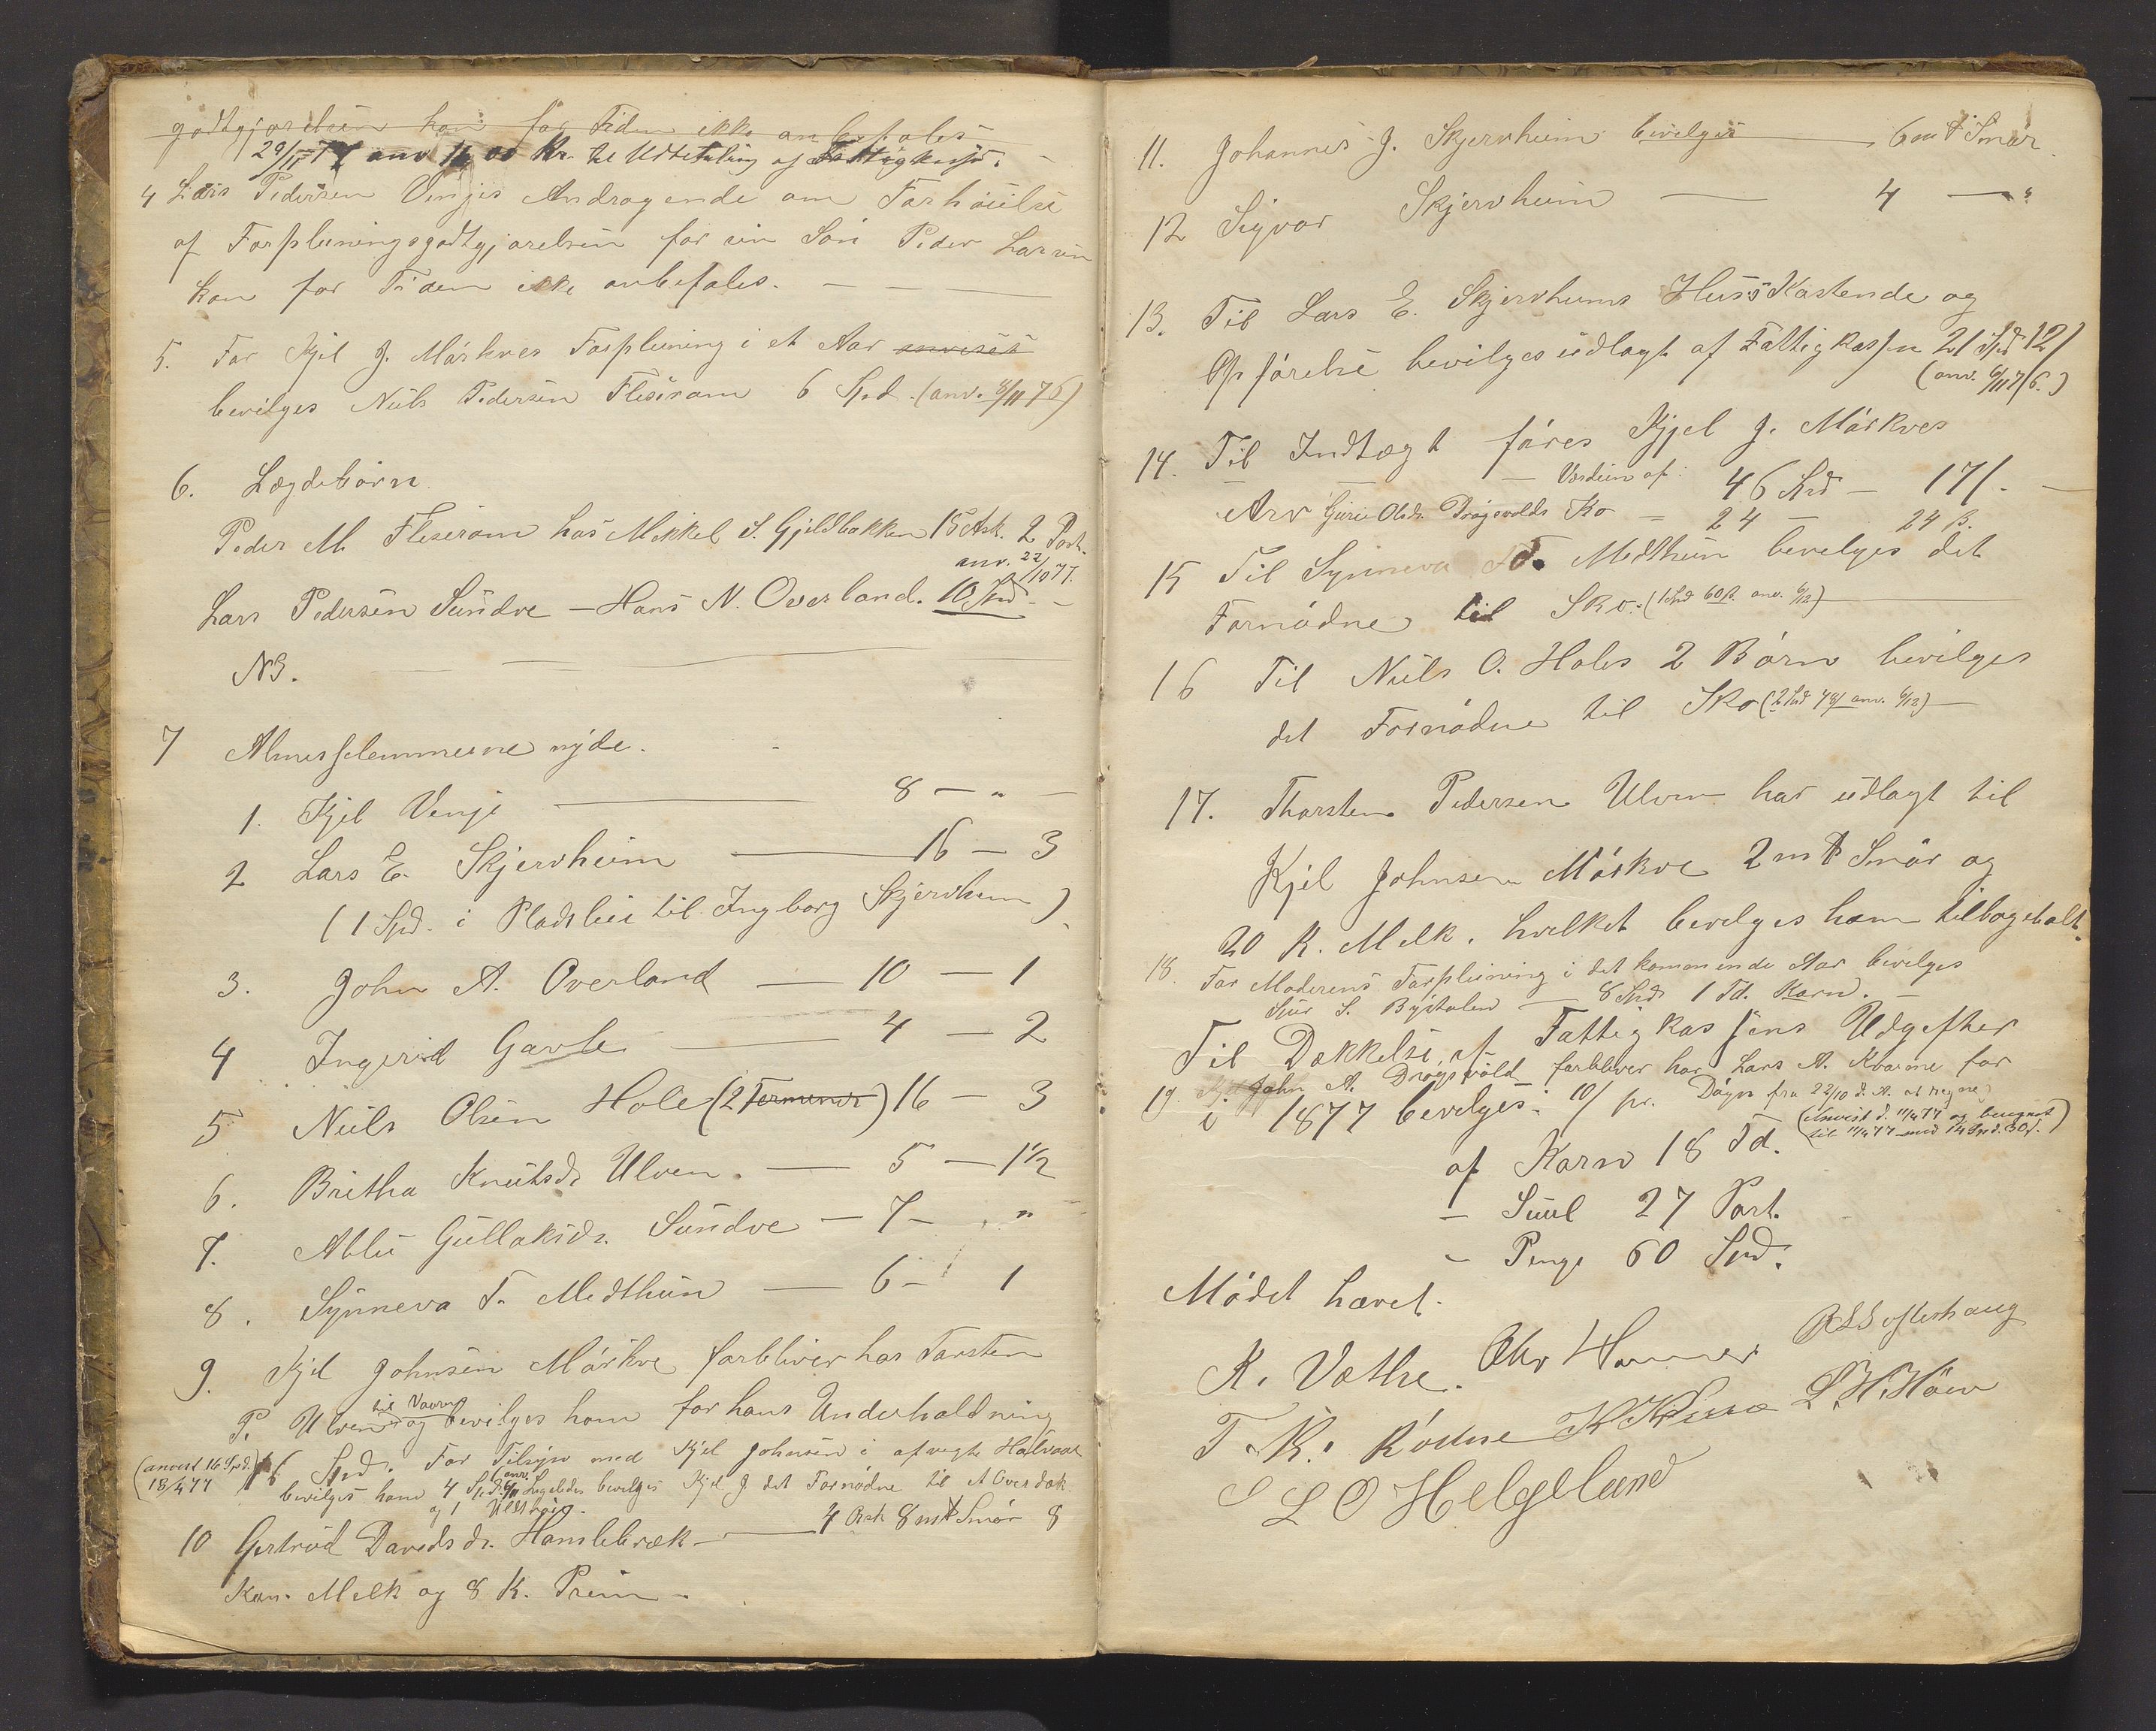 godtgjørelsen kan for Tiden ikke anbefales
29/11 77 anv 16 00 Kr. til Udbetaling af Fattigkassen.
4 Lars Pedersen Venjes Andragende om Forhøielse
af Forpleiningsgodtgjørelsen for sin Søn Peder Larsen
kan for Tiden ikke anbefales.
5. For Kjel J. Mørkves Forpleining i et Aar anviset
bevilges Niels Pedersen Fleseram 6 Spd. (anv. 8/11 76)
6. Lægdebørn
Peder M. Fleseram hos Mikkel S. Gjeldbakken 15 Ask. 2 Port.
anv. 22/10 77.
Lars Pedersen Sundve — Hans N. Overland. 10 Spd —
NB.
7 Almisselemmerne nyde.
1. Kjel Venje — 8 — " —
2 Lars E. Skjervheim — 16 — 3
(1 Spd. i Pladsleie til Ingborg Skjervheim)
3. John A. Overland — 10 — 1
4 Ingerid Gavle — 4 — 2
5 Niels Olsen Hole (2 Terminer) 16 — 3
6. Britha Knutsdr Ulven. — 5 — 1 1/2
7. Ablu Gullaksdr. Sundve — 7 — "
8. Synneva T. Medthun — 6 — 1
9. Kjel Johnsen Mørkve forbliver hos Torsten
til Vaaren
P. Ulven og bevilges ham for hans Underholdning
(anvist 16 Spd. 18/4 77) 16 Spd. For Tilsyn med Kjel Johnsen i afvigte Halvaar
bevilges ham 4 Spd. (anv. 6/11) Ligeledes bevilges Kjel J det Fornødne til et Overdæk
og 1 Uldtrøie.
10 Gertrud Davidsdr. Hamlebræk — 4 Ask 8 m℔ Smør 8
Kan. Melk og 8 K. Prim.
11. Johannes J. Skjervheim bevilges — 6 m℔ Smør.
12 Sigvar Skjervheim — 4 — "
13. Til Lars E. Skjervheims Huses Kastende og
Opførelse bevilges udlagt af Fattigkassen 21 Spd 12/
(anv. 6/11 76.)
14. Til Indtægt føres Kjel J. Mørkves
— Værdien af:
Arv 46 Spd — 17/. —
Guri Olsdr. Drøgsvolds Ko — 24 — 24 ß.
15 Til Synneva T. Medthun bevilges det
Fornødne til Sko. (1 Spd 60 ß. anv. 6/12)
16 Til Niels O. Holes 2 Børn bevilges
det Fornødne til Sko (2 Spd 48/ anv. 6/12) —
17. Thorsten Pedersen Ulven har udlagt til
Kjel Johnsen Mørkve 2 m℔ Smør og
20 K. Melk, hvilket bevilges ham tilbagebalt.
18. For Moderens Forpleining i det kommende Aar bevilges
Siur S. Bystølen — 8 Spd 1 Td. Korn. —
Til Dækkelse af Fattigkassens Udgifter
19. John A. Drøgsvold forbliver hos Lars A. Kvarme for
i 1877 bevilges: 10/ pr. Døgn fra 22/10 d. A. at regne
(Anvist d. 11/4 77 og beregnet
til 11/4 77 med 14 Spd. 30/.)
af Korn 18 Td.
— Suul 27 Port.
— Penge 60 Spd.
Mødet hævet.
K. Vethe. Chr Hammer
T. K. Rødne L. H. Høen
L O Helgeland